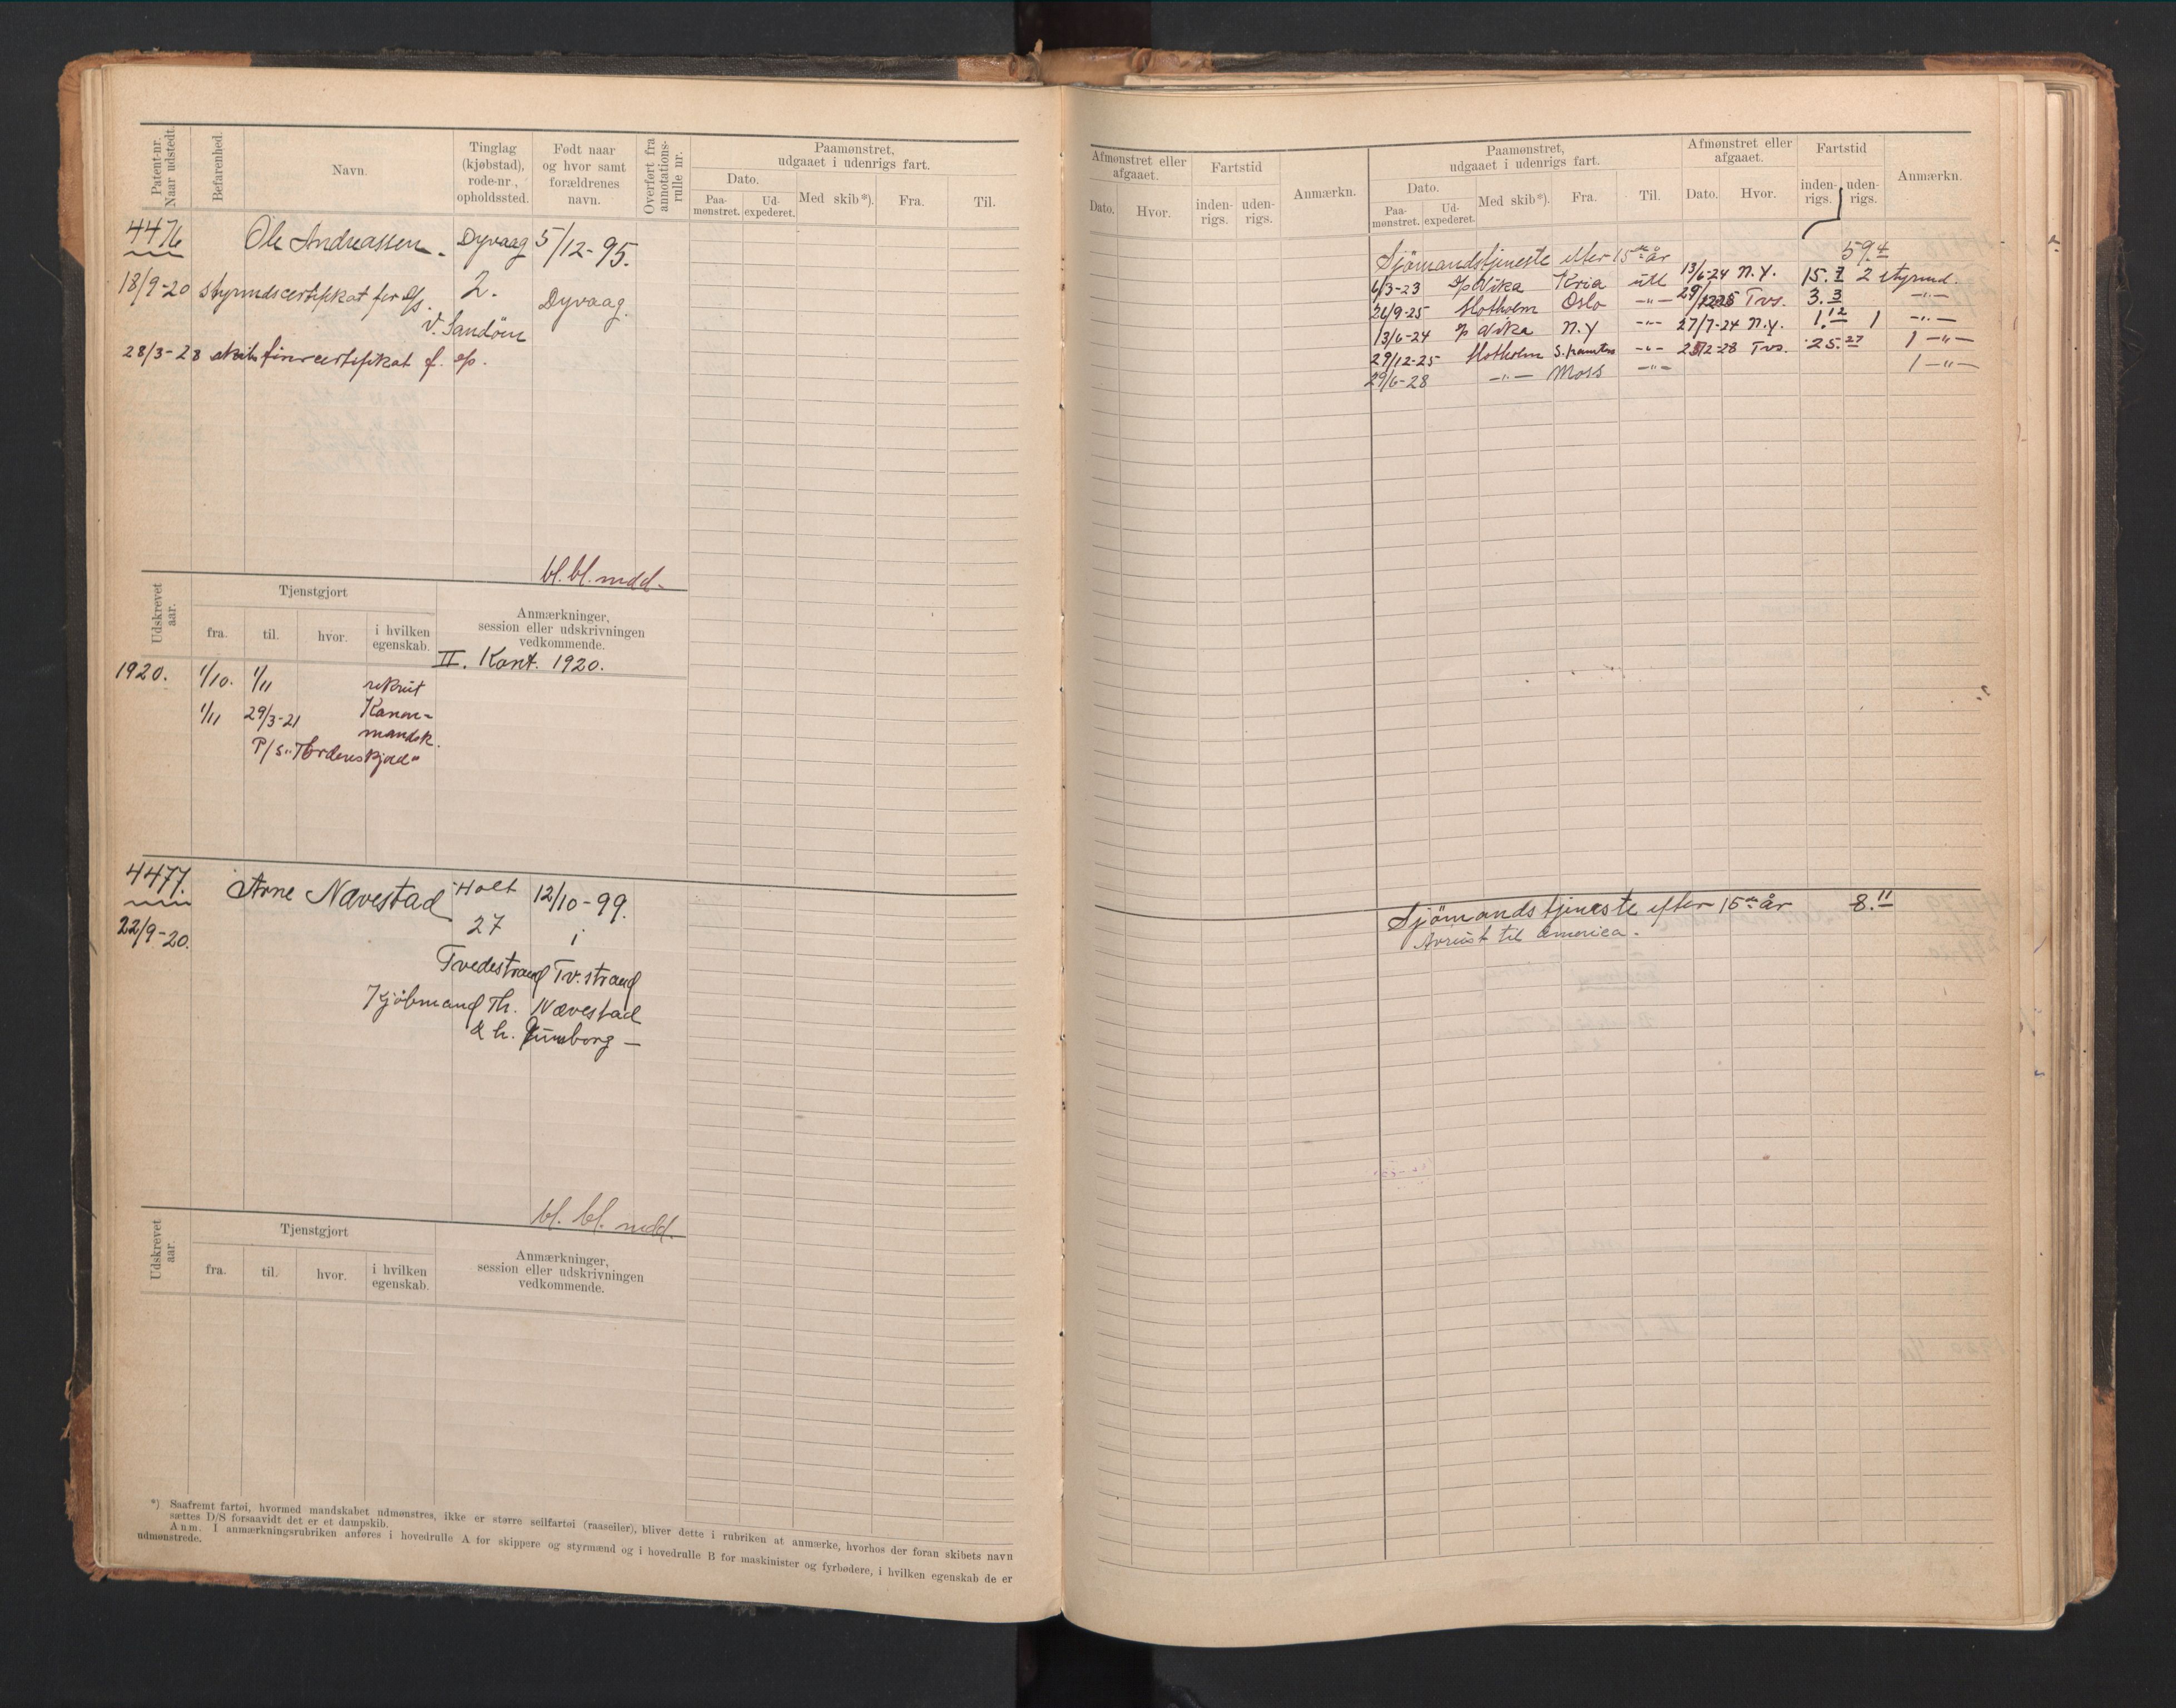 Patent-nr. Naar udstedt.
Befarenhed.
Navn.
Tinglag (kjøbstad), rode-nr., opholdssted.
Født naar og hvor samt forældrenes navn.
Overført fra annotations-rulle nr.
Paamønstret, udgaaet i udenrigs fart.
Dato.
Paa-mønstret.
Ud-expederet.
Med skib*).
Fra.
Til.
4476
Ole Andreassen.
Dyvaag
5/12-95.
18/9-20 styrmdscertifikat for
2.
Dyvaag.
v. Sandöen
28/3-28
bl. bl. mdd-
Udskrevet aar.
Tjenstgjort
fra.
til.
hvor.
i hvilken egenskab.
Anmærkninger, session eller udskrivningen vedkommende.
II. Kont. 1920.
1920. 1/10. 1/11 rekrut
1/11 29/3-21 Kanon-
mandsk.
P/s „Tordenskjold"
4477.
Arne Nævestad
Holt
12/10-99.
22/9-20.
27 i
Tvedestrand Tv.strand
Kjöbmand Th. Nævestad
& h.
bl. bl. mdd.
Udskrevet aar.
Tjenstgjort
fra.
til.
hvor.
i hvilken egenskab.
Anmærkninger, session eller udskrivningen vedkommende.
*) Saafremt fartøi, hvormed mandskabet udmønstres, ikke er større seilfartøi (raaseiler), bliver dette i rubriken at anmærke, hvorhos der foran skibets navn
sættes D/S forsaavidt det er et dampskib.
Anm. I anmærkningsrubriken anføres i hovedrulle A for skippere og styrmænd og i hovedrulle B for maskinister og fyrbødere, i hvilken egenskab de er
udmønstrede.
Afmønstret eller afgaaet.
Dato.
Hvor.
Fartstid
inden-rigs.
uden-rigs.
Anmærkn.
Paamønstret, udgaaet i udenrigs fart.
Dato.
Paa-mønstret.
Ud-expederet.
Med skib*).
Fra.
Til.
Afmønstret eller afgaaet.
Dato.
Hvor.
Fartstid
inden-rigs.
uden-rigs.
Anmærkn.
Sjömandstjeneste efter 15de år 59.4
6/3-23 Vika Kria utl 13/6-24 N.Y. 15.7 2 styrmd.
26/9-25 Slotholm Oslo -"- Tvs. 3.3 -"-
13/6-24 Vika N.Y -"- 27/7-24 N.Y. 1.12 1 -"-
29/12-25 Slotholm -"- Tvs. 25.27 1 -"-
29/6-28 -"- Moss -"- 1 -"-
Sjömandstjeneste efter 15de år 8.11
Avreist til America.